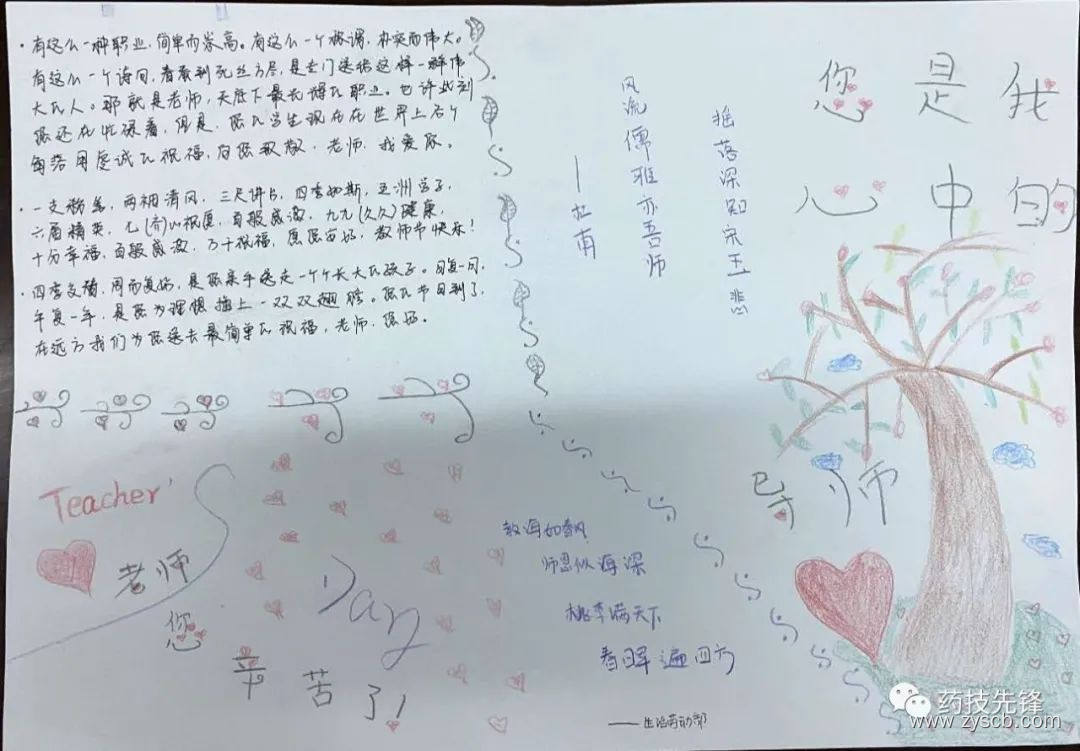 ·有这么一种职业，简单而崇高。有这么一个称谓，朴实而伟大。
有这么一个诗句，春蚕到死丝方尽，是专门送给这样一群伟
大的人。那就是老师，天底下最光辉的职业。也许此刻
您还在忙碌着，但是，您的学生现在在世界上各个
角落用虔诚的祝福，向您致敬，老师，我爱您。
·一支粉笔，两袖清风，三尺讲台，四季如斯，五洲学子，
六届精英，七(齐)心祝愿，百般感激，九九(久久)健康，
十分幸福，百般感激，万千祝福，愿您安好，教师节快乐！
·四季交替，周而复始，是您亲手送走一个个长大的孩子。日复一日，
年复一年，是您为理想插上一双双翅膀。您的节日到了，
在远方我们为您送去最简单的祝福，老师，您好。
摇落深知宋玉悲
风流儒雅亦吾师
——杜甫
您是我
心中的
导师
Teacher's
Day
老师
您
辛苦了！
教诲如春风
师恩似海深
桃李满天下
春晖遍四方
——生活劳动部
药技先锋
www.zyscb.com